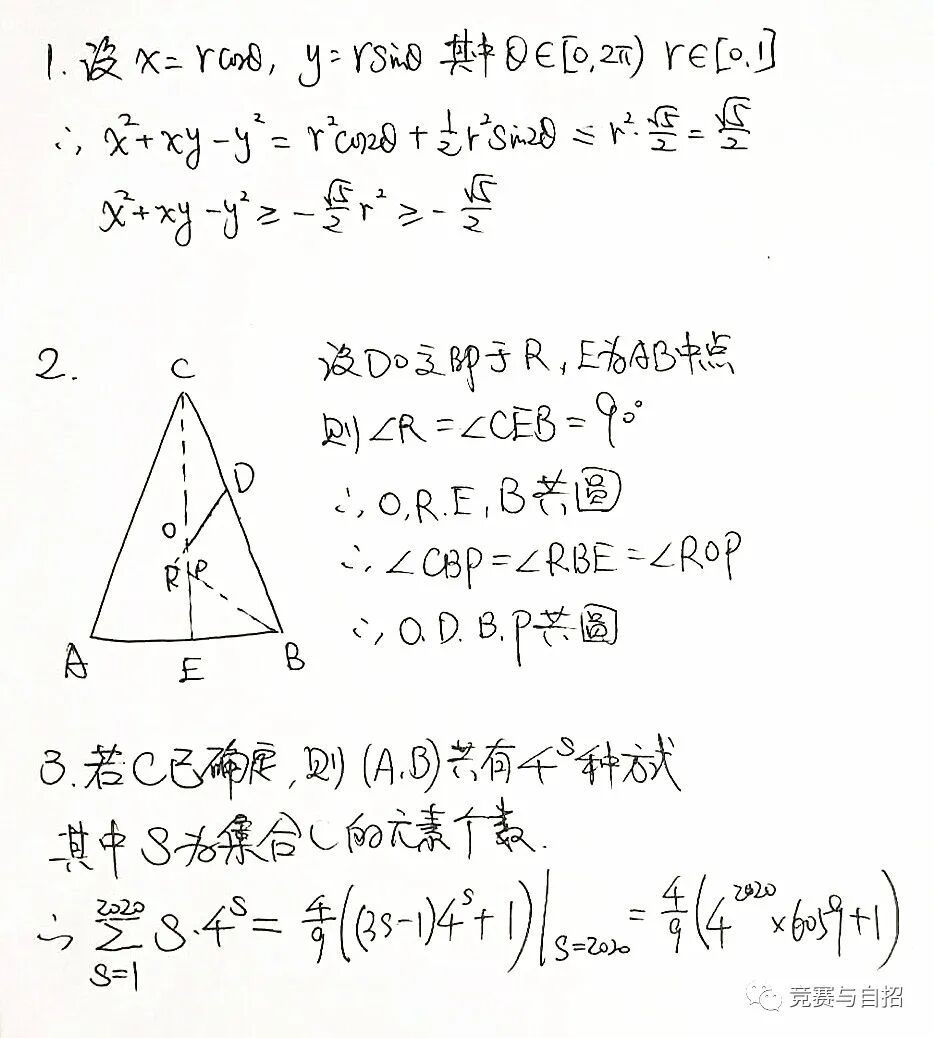 1. 设 x = rcosθ, y = rsinθ 其中 θ∈[0, 2π) r∈[0, 1]
∴ x²+xy-y² = r²cos2θ + 1/2 r²sin2θ ≤ r²·√5/2 = √5/2
x²+xy-y² ≥ -√5/2 r² ≥ -√5/2
2.
C
D
O
R
P
A
E
B
设DO交BP于R, E为AB中点
则∠R=∠CEB=90°
∴ O, R. E, B共圆
∴ ∠CBP=∠RBE=∠ROP
∴ O. D. B. P共圆
3. 若C已确定, 则 (A, B) 共有 4^S 种方式
其中S为集合C的元素个数.
∴ ∑_{S=1}^{2020} S·4^S = 4/9((3S-1)4^S+1)|_{S=2020} = 4/9(4^{2020}×6059+1)
竞赛与自招